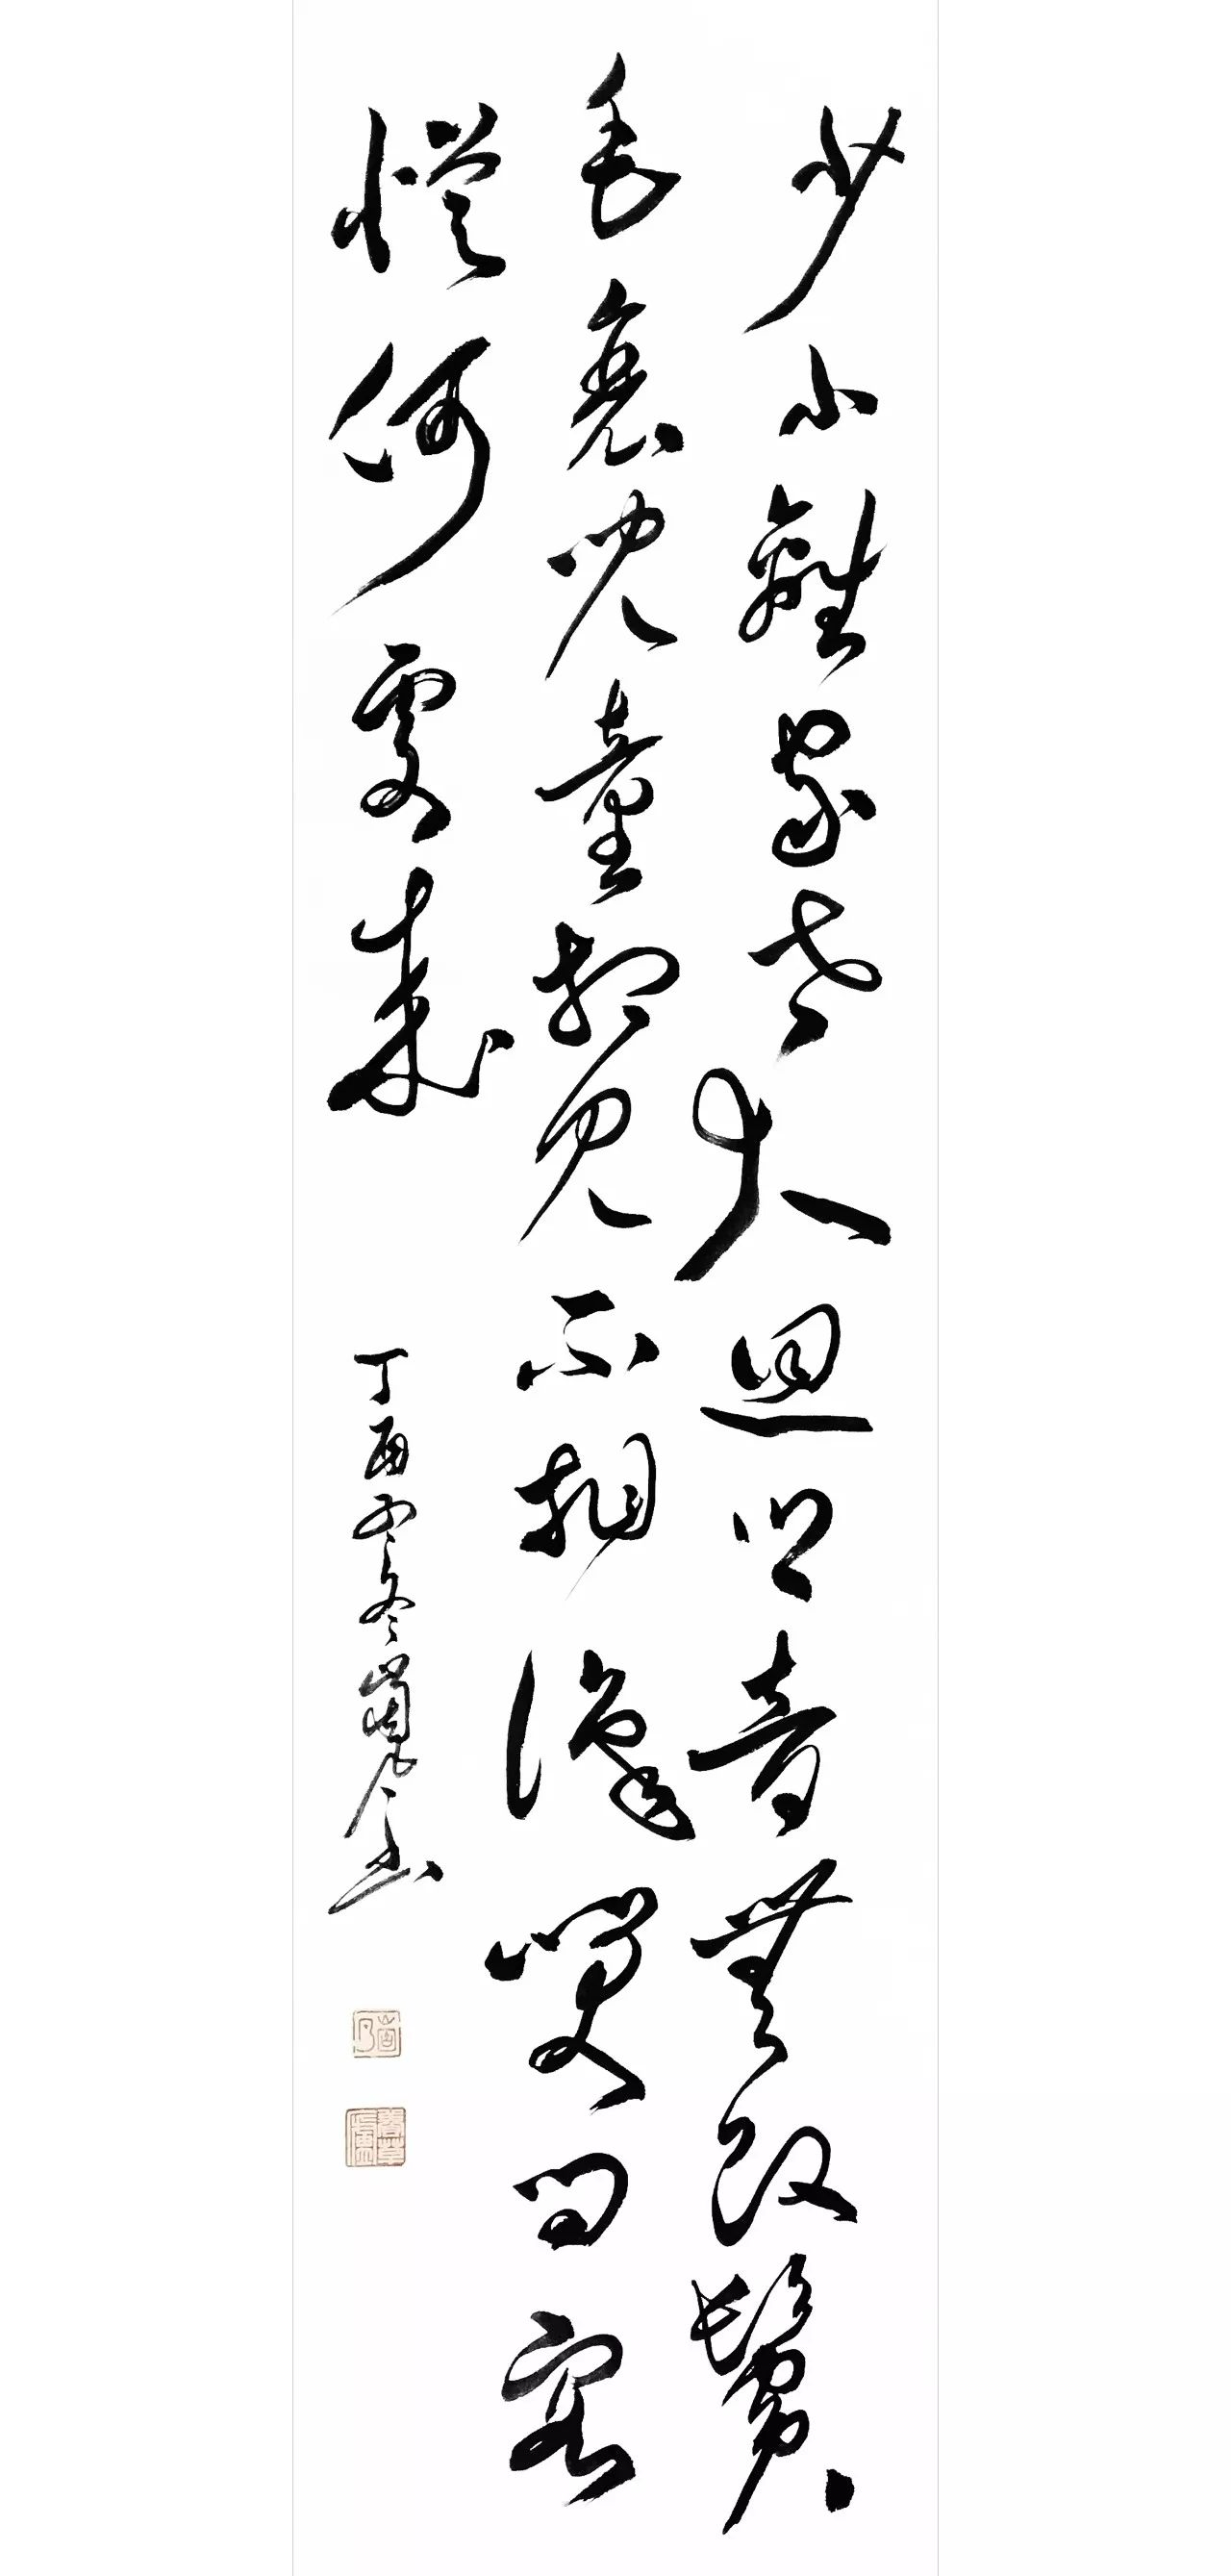 少小離家老大迴鄉音無改鬢
毛衰兒童相見不相識笑問客
從何處來
丁酉冬